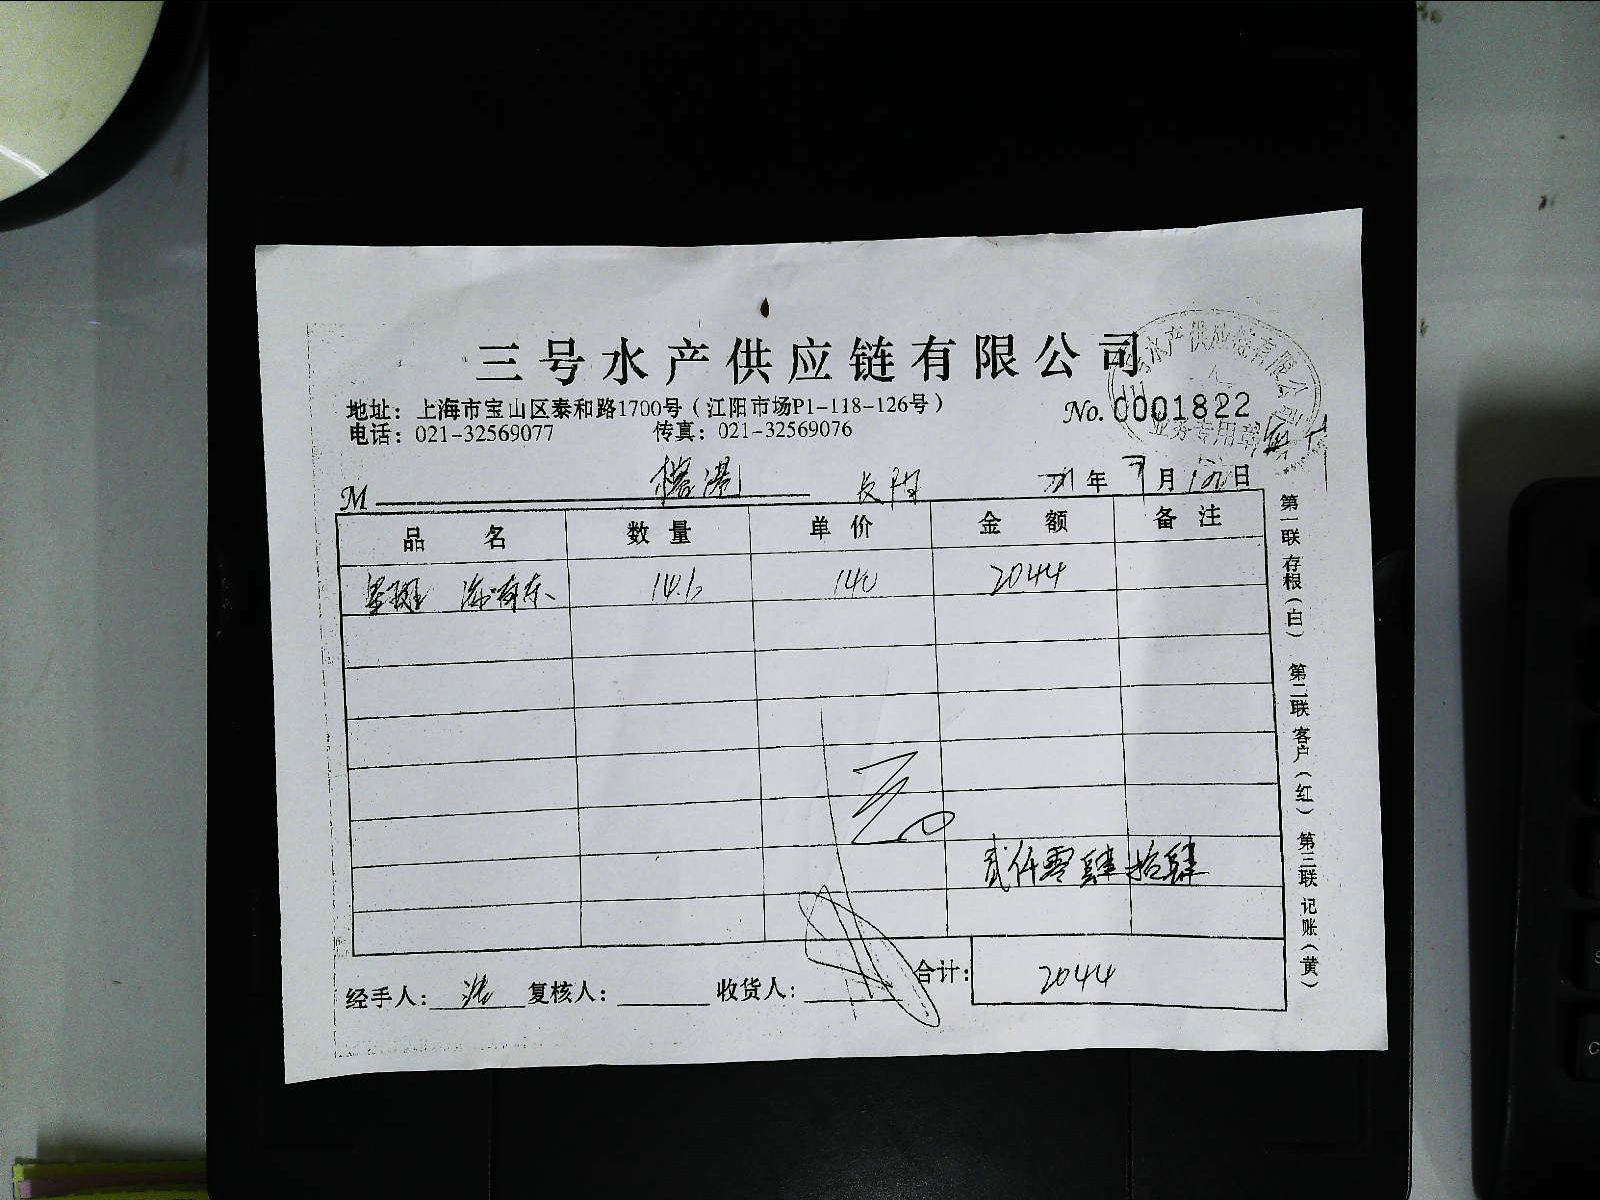 三号水产供应链有限公司
地址：上海市宝山区泰和路1700号（江阳市场P1-118-126号）
电话：021-32569077 传真：021-32569076
No. 0001822
水产供应链有限公司
业务专用章
M 年 月 日
品 名 数量 单价 金 额 备注
14.6 140 2044
贰仟零肆拾肆
经手人： 复核人： 收货人： 合计： 2044
第一联 存根（白） 第二联 客户（红） 第三联 记账（黄）